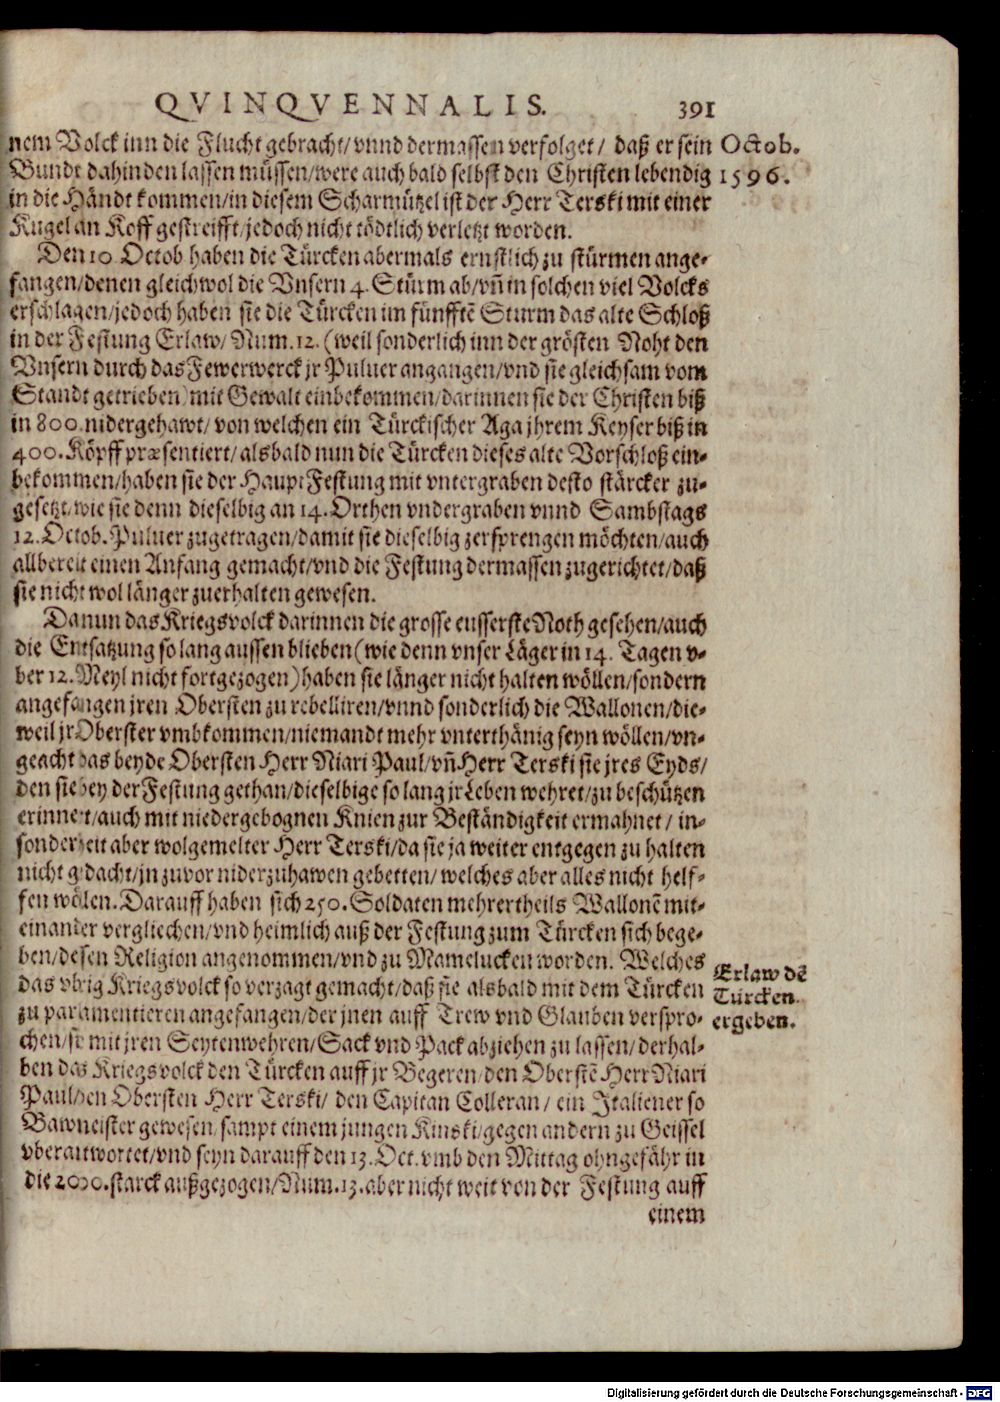 QVINQVENNALIS. 391
nem Volck inn die Flucht gebracht/vnnd dermassen verfolget/ daß er sein
Octob.
Bundt dahinden lassen müssen/were auch bald selbst den Christen lebendig
1596.
in die Händt kommen/in diesem Scharmützel ist der Herr Terski mit einer
Kugel an Koff gestreifft/jedoch nicht tödtlich verletzt worden.
Den 10 Octob haben die Türcken abermals ernstlich zu stürmen ange-
fangen/denen gleichwol die Vnsern 4. Stürm ab/vñ in solchen viel Volcks
erschlagen/jedoch haben sie die Türcken im fünfftē Sturm das alte Schloß
in der Festung Erlaw/Num.12.(weil sonderlich inn der grösten Noht den
Vnsern durch das Fewerwerck jr Puluer angangen/vnd sie gleichsam vom
Standt getrieben/mit Gewalt einbekommen/darinnen sie der Christen biß
in 800.nidergehawt/von welchen ein Türckischer Aga jhrem Keyser biß in
400.Köpff præsentiert/alsbald nun die Türcken dieses alte Vorschloß ein-
bekommen/haben sie der Haupt Festung mit vntergraben desto stärcker zu-
gesetzt/wie sie denn dieselbig an 14.Orthen vndergraben vnnd Sambstags
12.Octob.Puluer zugetragen/damit sie dieselbig zersprengen möchten/auch
allbereit einen Anfang gemacht/vnd die Festung dermassen zugerichtet/daß
sie nicht wol länger zuerhalten gewesen.
Da nun das Kriegsvolck darinnen die grosse eusserste Noth gesehen/auch
die Entsatzung so lang aussen blieben(wie denn vnser Läger in 14. Tagen v-
ber 12.Meyl nicht fortgezogen)haben sie länger nicht halten wöllen/sondern
angefangen jren Obersten zu rebelliren/vnnd sonderlich die Wallonen/die-
weil jr Oberster vmbkommen/niemandt mehr vnterthänig seyn wöllen/vn-
geacht das beyde Obersten Herr Niari Paul/vñ Herr Terski sie jres Eyds/
den sie bey der Festung gethan/dieselbige so lang jr Leben wehret/zu beschützen
erinnert/auch mit niedergebognen Knien zur Beständigkeit ermahnet/ in-
sonderheit aber wolgemelter Herr Terski/da sie ja weiter entgegen zu halten
nicht gedacht/jn zuvor niderzuhawen gebetten/welches aber alles nicht helf-
fen wöllen.Darauff haben sich 250.Soldaten mehrertheils Wallonē mit-
einander vergliechen/vnd heimlich auß der Festung zum Türcken sich bege-
ben/desen Religion angenommen/vnd zu Mamelucken worden. Welches
das vbrig Kriegsvolck so verzagt gemacht/daß sie alsbald mit dem Türcken
Erlaw dē
Türcken
ergeben.
zu parlamentieren angefangen/der jnen auff Trew vnd Glauben verspro-
chen/sie mit jren Seytenwehren/Sack vnd Pack abziehen zu lassen/derhal-
ben das Kriegsvolck den Türcken auff jr Begeren/den Oberstē Herr Niari
Paul/den Obersten Herr Terski/ den Capitan Colleran/ ein Italiener so
Bawmeister gewesen/sampt einem jungen Kinski/gegen andern zu Geissel
vberantwortet/vnd seyn darauff den 13.Oct.vmb den Mittag ohngefähr in
die 2000.starck außgezogen/Num.13.aber nicht weit von der Festung auff
einem
Digitalisierung gefördert durch die Deutsche Forschungsgemeinschaft - DFG